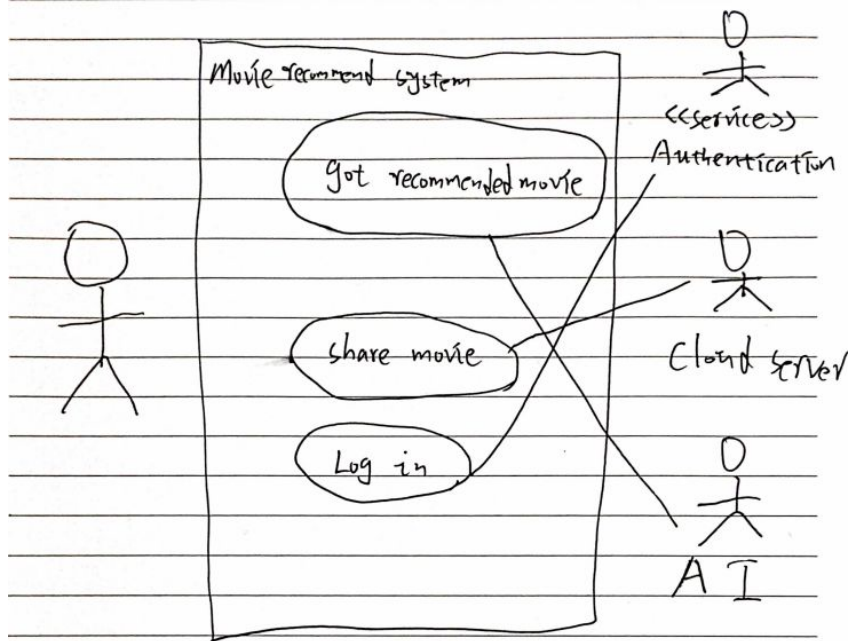 Movie recommend system
got recommended movie
share movie
Log in
<<service>>
Authentication
Cloud server
AI